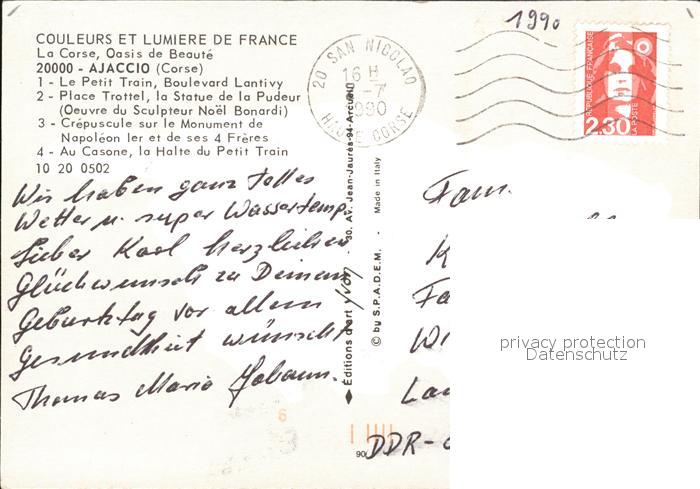 1990
COULEURS ET LUMIERE DE FRANCE
La Corse, Oasis de Beauté
20000 - AJACCIO (Corse)
1 - Le Petit Train, Boulevard Lantivy
2 - Place Trottel, la Statue de la Pudeur
(Oeuvre du Sculpteur Noël Bonardi)
3 - Crépuscule sur le Monument de
Napoléon Ier et de ses 4 Frères
4 - Au Casone, la Halte du Petit Train
10 20 0502
20 SAN NICOLAO
16 H
-7
1990
HAUTE CORSE
REPUBLIQUE FRANÇAISE
2,30
LA POSTE
Wir haben ganz tolles
Wetter u. super Wassertemp.
Lieber Karl herzlichen
Glückwunsch zu Deinem
Geburtstag vor allem
Gesundheit wünscht
Thomas Maria Johann.
Éditions d'art yvon - 30, Av. Jean-Jaurès-94-Arcueil
© by S.P.A.D.E.M. - Made in Italy
Fam.
K
Fa
Wi
La
DDR-
6
90
privacy protection
Datenschutz